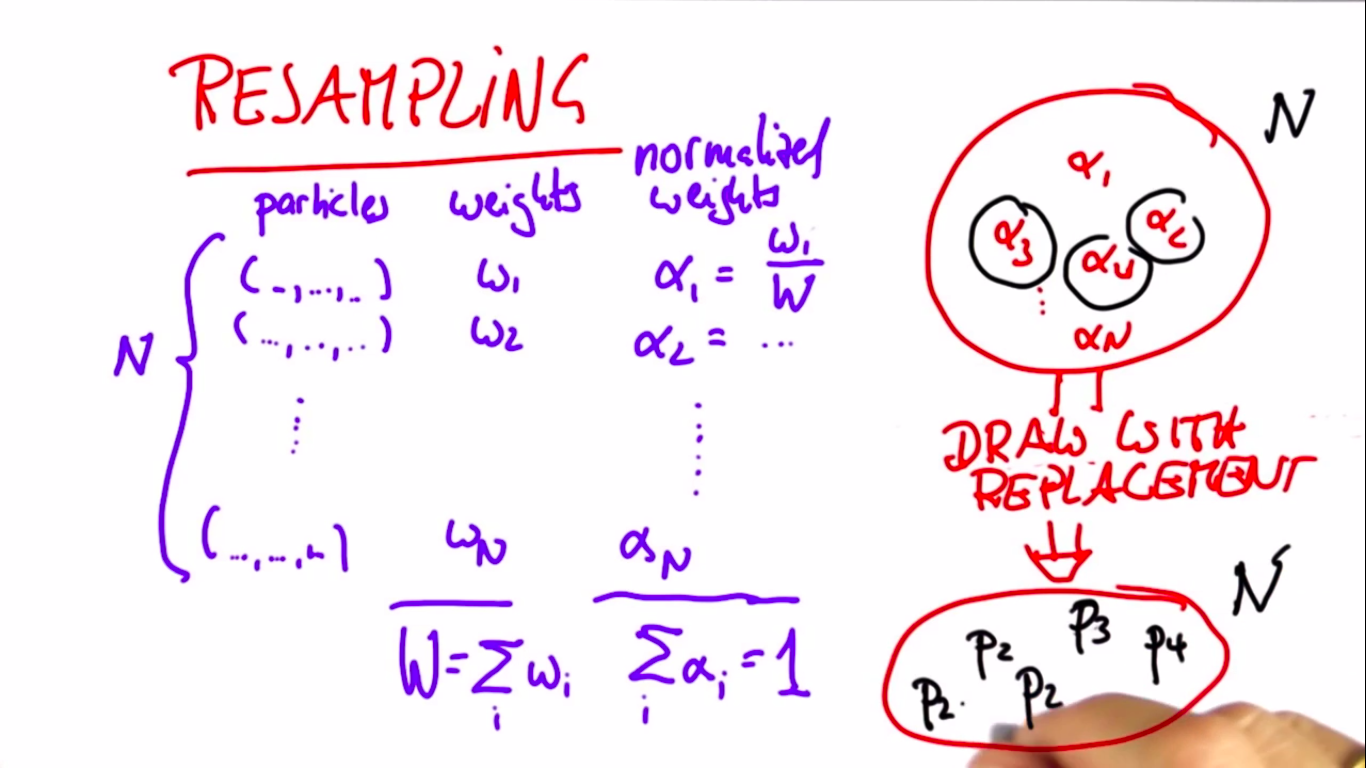 RESAMPLING
particles weights normalized weights
N
(..., ..., ...) ω₁ α₁ = ω₁/W
(..., ..., ...) ω₂ α₂ = ...
(..., ..., ...) ωN αN
W = Σᵢ ωᵢ Σᵢ αᵢ = 1
N
α₁
α₃ α₄ α₂
αN
DRAW WITH
REPLACEMENT
N
p₂ p₃ p₄
p₂ p₂